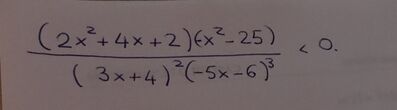 (2x²+4x+2)(-x²-25)
(3x+4)²(-5x-6)³ < 0.